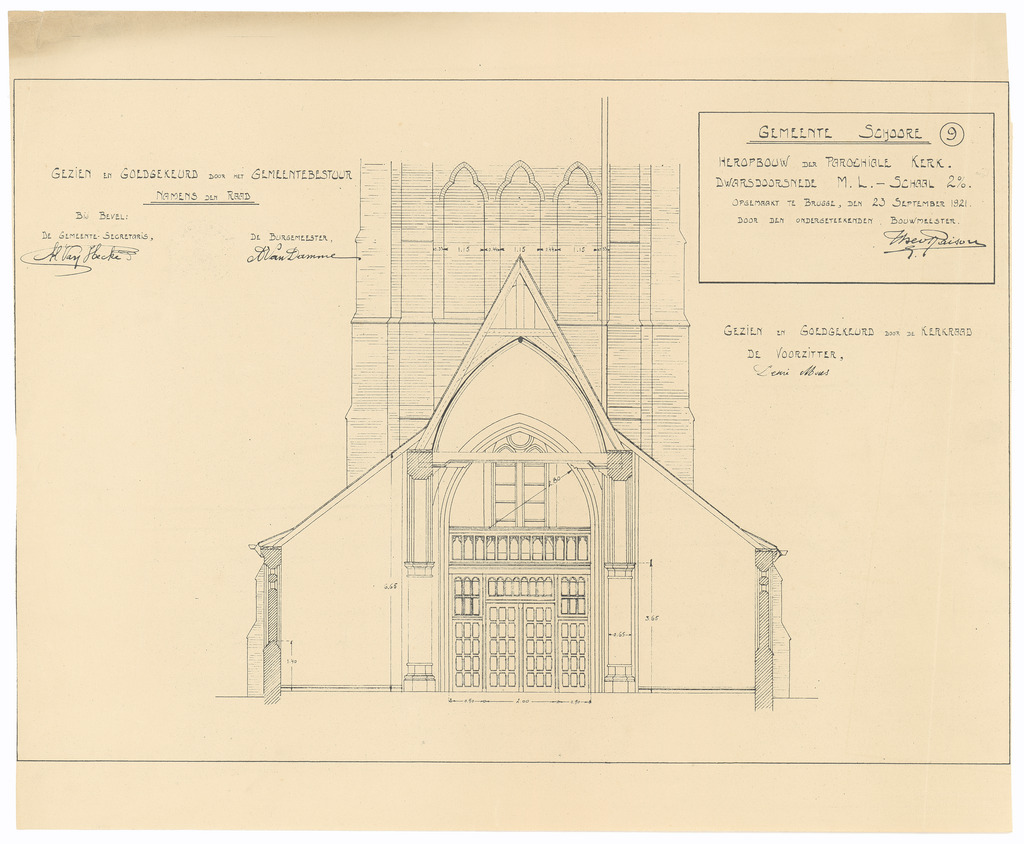 GEMEENTE SCHOORE 9
HEROPBOUW DER PAROCHIALE KERK.
DWARSDOORSNEDE M. L. – SCHAAL 2%.
OPGEMAAKT TE BRUGGE, DEN 23 SEPTEMBER 1921.
DOOR DEN ONDERGETEEKENDEN BOUWMEESTER.
GEZIEN EN GOEDGEKEURD DOOR HET GEMEENTEBESTUUR
NAMENS DEN RAAD
BIJ BEVEL:
DE GEMEENTE-SECRETARIS,
DE BURGEMEESTER,
Van Hecke
Van Damme
GEZIEN EN GOEDGEKEURD DOOR DE KERKRAAD
DE VOORZITTER,
1.15 1.15 1.15
2.80
6.65
3.65
0.65
2.00